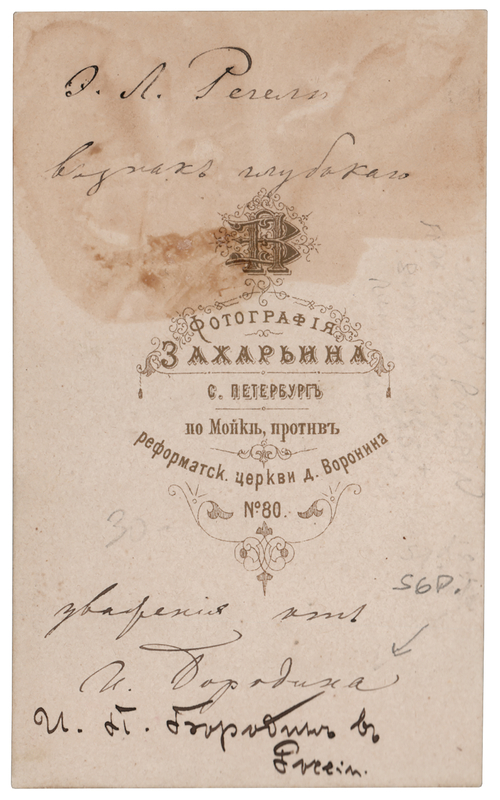 Э. Л. Регелю
в знакъ глубокаго
ФОТОГРАФІЯ
ЗАХАРЬИНА
С. ПЕТЕРБУРГЪ
по Мойкѣ, противъ
реформатск. церкви д. Воронина
№80.
30
S6D.
уваженія отъ
И. Бородина
И. П. Бородинъ въ